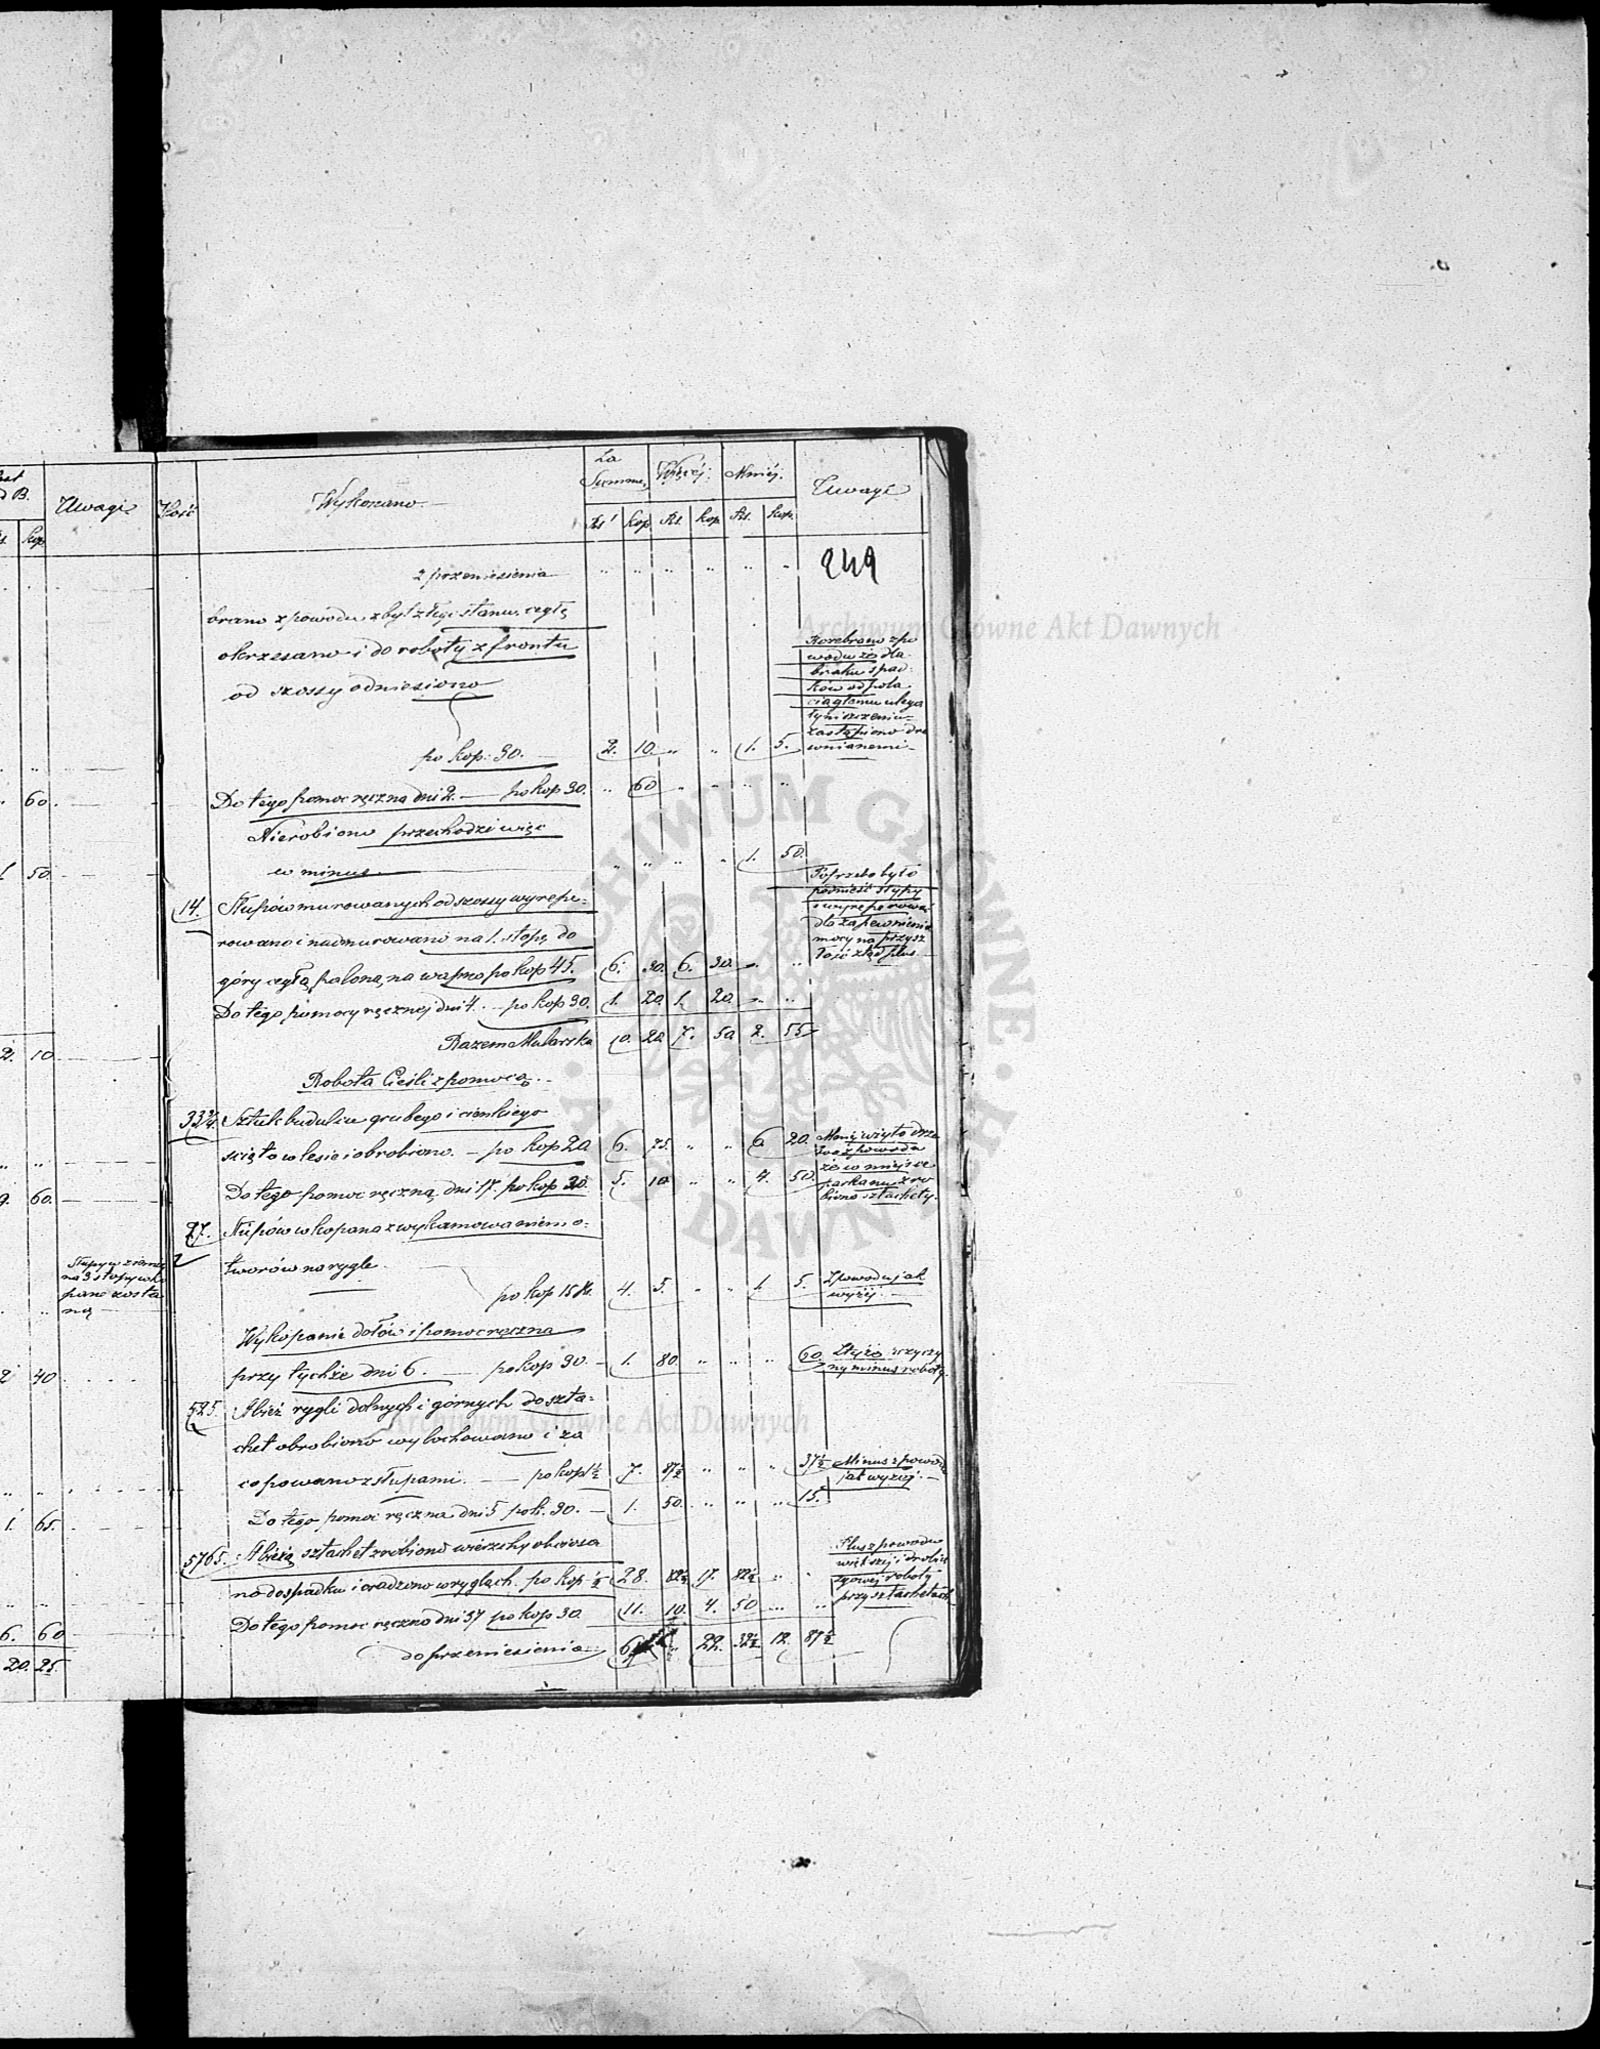 Uwagi
kop
60.
50.
2. 10
60.
Słupy w ziemię
na 3 stopy wko
pane zosta
ną
40
1. 65.
6. 60
20. 25.
Ilość
Wykonano
Za Summę
Więcej:
Mniej.
Uwagi
Rs kop Rs. kop Rs. kop.
249
z przeniesienia
brano z powodu zbyt złego stanu, cegłę
okrzesano i do roboty z frontu
od szossy odniesiono
po kop: 30. 2. 10. 1. 5.
Rozebrano z po
wodu że dla
braku spad-
ków od pola
ciągłemu ulega
ły niszczeniu
zastąpiono dre
wnianemi
Do tego pomoc ręczna dni 2. po kop 30. 60
Nierobiono przechodzi więc
w minus 1. 50.
14. Słupów murowanych od szossy wyrepe-
rowano i nadmurowano na 1. stopę do
góry cegłą paloną na wapno po kop 45. 6. 30. 6. 30.
Potrzeba było
podnieść słupy
i wyreperować
dla zapewnienia
mocy na przysz
łość ztąd plus
Do tego pomocy ręcznej dni 4. po kop 30. 1. 20. 1. 20.
Razem Mularska 10. 20. 7. 50 2. 55
Robota Cieśli z pomocą.
33¾ Sztuk budulcu grubego i cienkiego
ścięto w lesie i obrobiono. po kop 20. 6. 75. 6. 20.
Mniej wzięto drze
wa z powodu
że w miejsce
parkanu zro
biono sztachety.
Do tego pomoc ręczna dni 17. po kop 30. 5. 10 4. 50.
27. Słupów wkopano z wyłamowaniem o-
tworów na rygle.
po kop 15 4. 5. 1. 5.
Z powodu jak
wyżej
Wykopanie dołów i pomoc ręczna
przy tychże dni 6. po kop 30. 1. 80. 60.
Z tejże przyczy
ny minus roboty.
525. Łbież rygli dolnych i górnych do szta-
chet obrobiono wyłochowano i za
copowano z słupami. po kop 1½ 7. 87½ 37½
Minus z powodu
jak wyżej.
Do tego pomoc ręczna dni 5 po k. 30. 1. 50. 15.
5765. sztachet zrobiono wierzchy obciosa
no do spadku i osadzono w ryglach. po kop ½ 28. 82½ 17. 82½
Plus z powodu
większej i drobia
zgowej roboty
przy sztachetach
Do tego pomoc ręczna dni 37 po kop 30. 11. 10. 4. 50
do przeniesienia 22. 32½ 12. 87½
Archiwum Główne Akt Dawnych
Archiwum Główne Akt Dawnych
ARCHIWUM GŁÓWNE AKT DAWNYCH